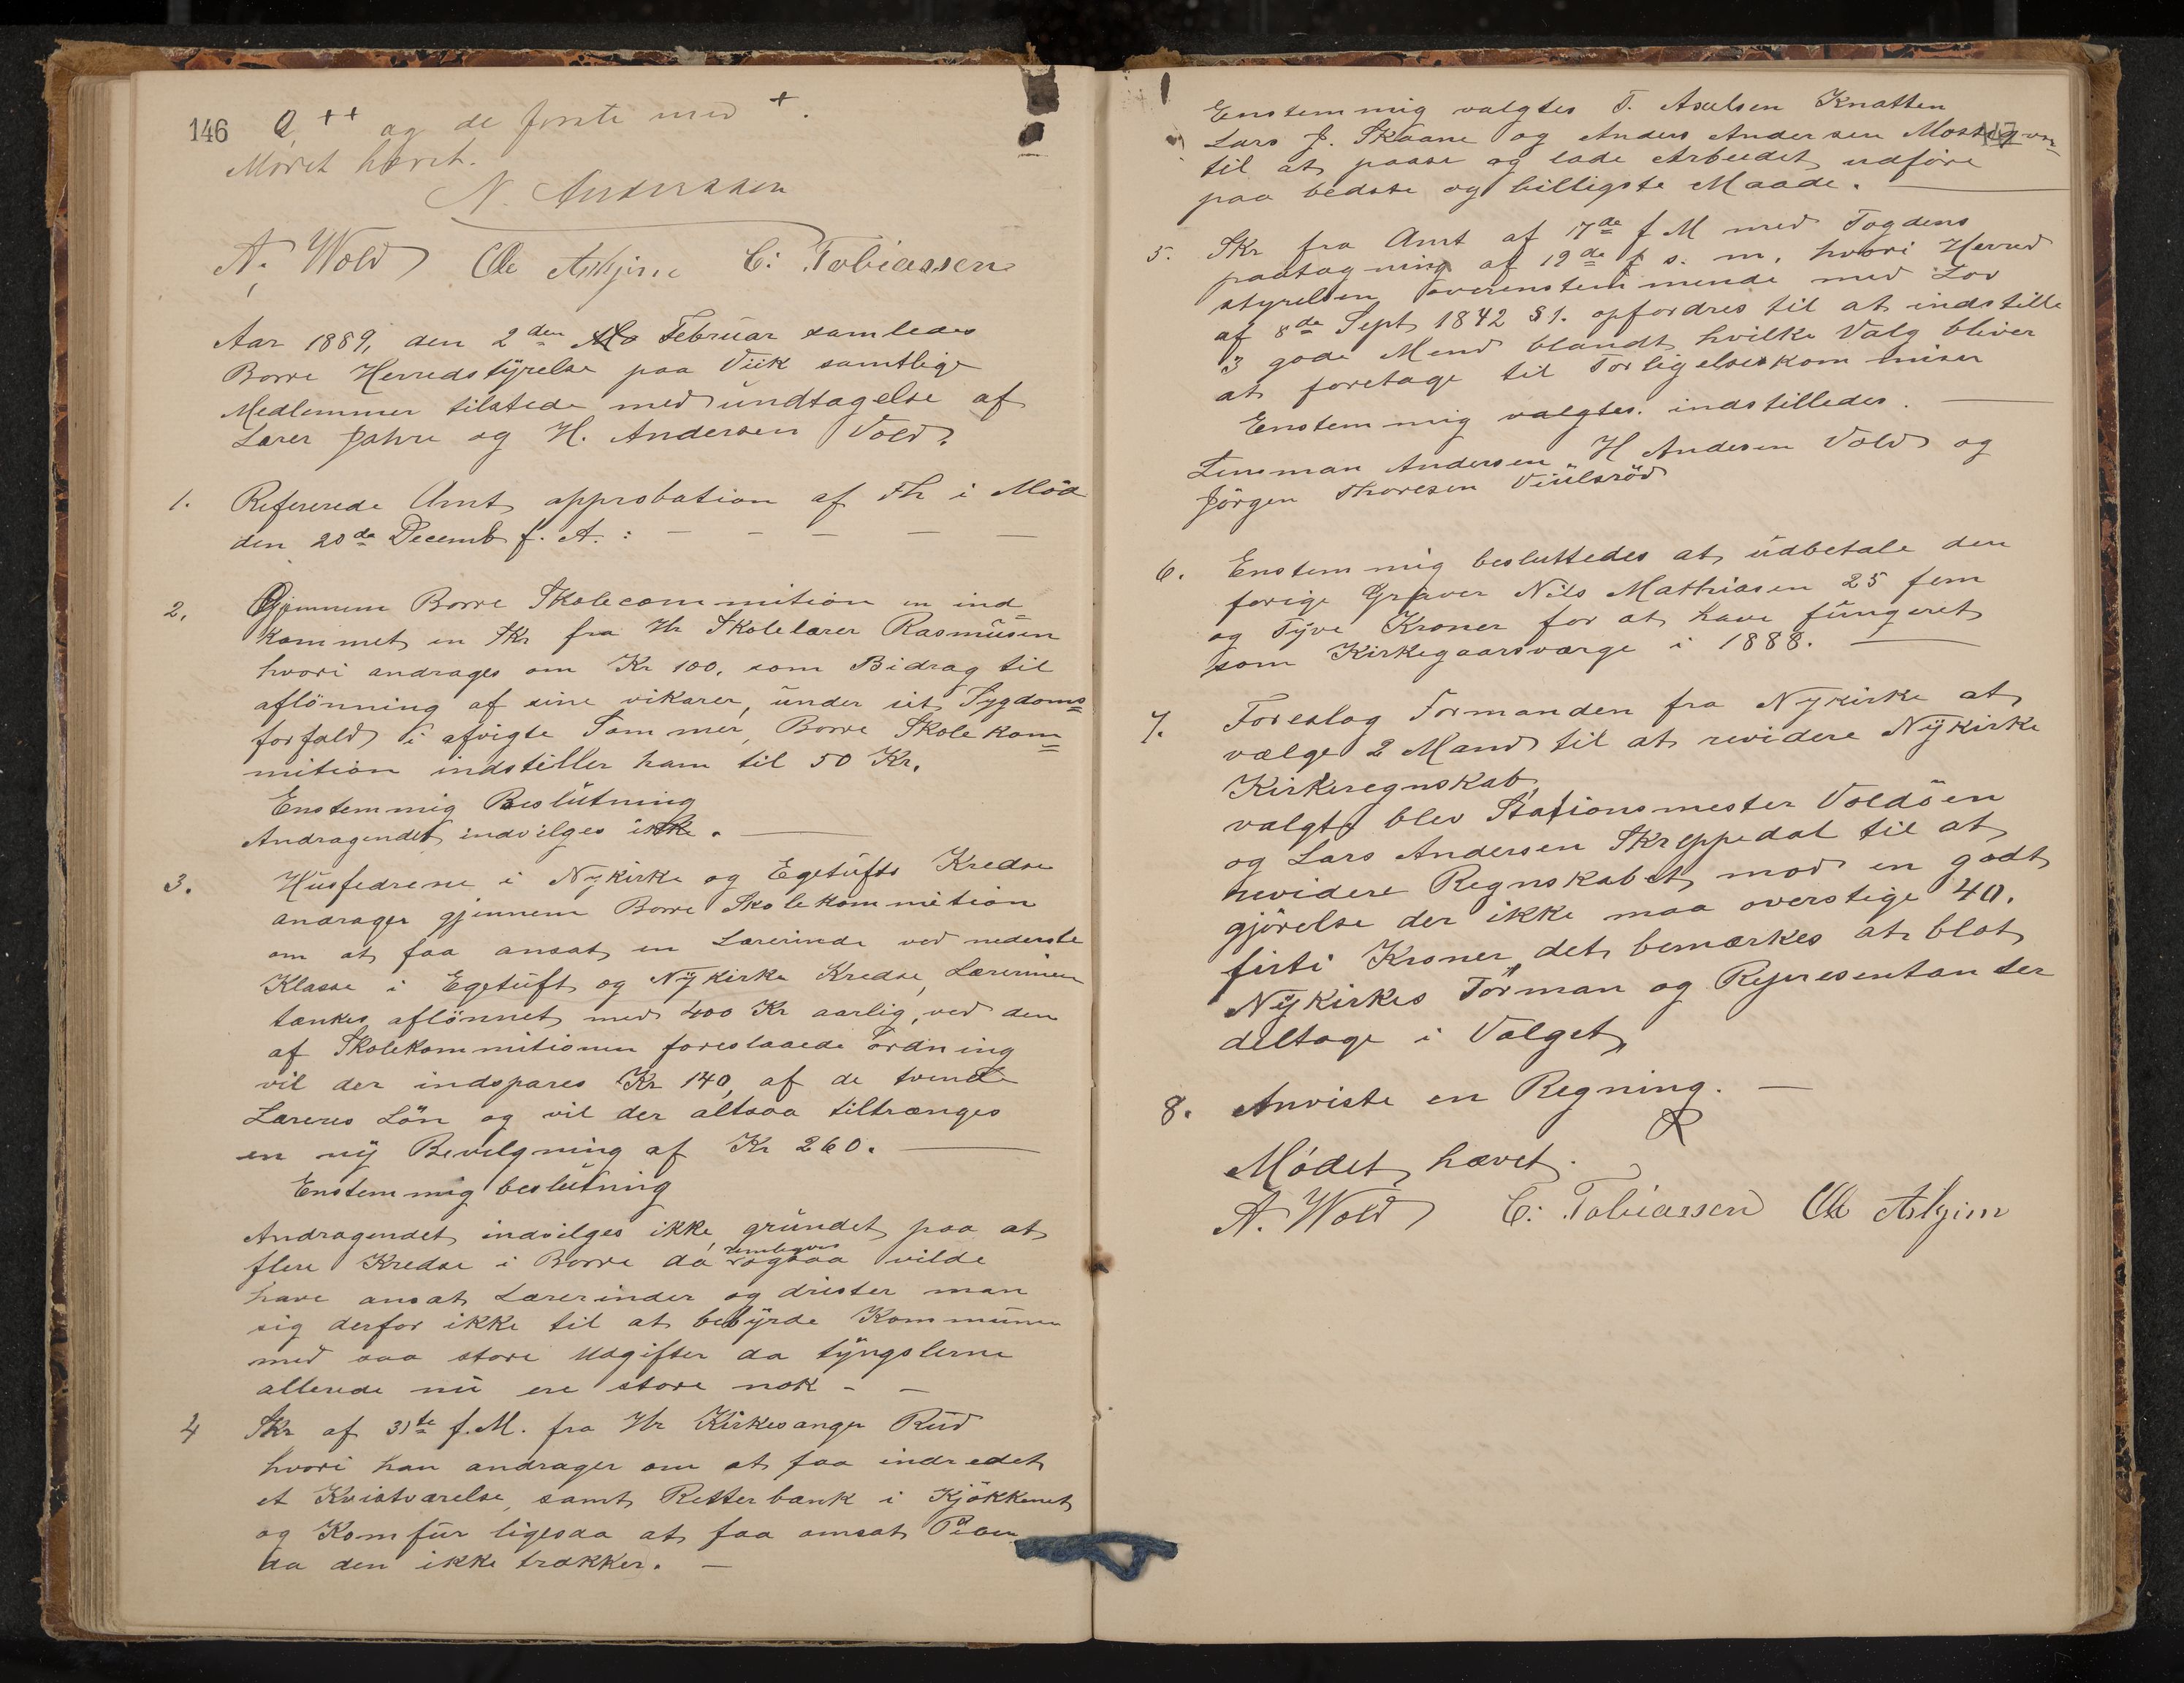 146 ++ og de første med +.
Mødet hævet.
N. Anderssen
A. Wold Ole Askjem C: Tobiassen
Aar 1889, den 2den Februar samledes
Borre Herredstyrelse paa Viik samtlige
Medlemmer tilstede med undtagelse af
Lærer Jahre og H. Andersen Vold.
1. Refererede Amt approbation af Fh i Möde
den 20de Decemb f. A. : — — — — —
2. Gjennem Borre Skolecommition en ind=
kommet en Skr fra Hr Skolelærer Rasmusen
hvori andrages om Kr 100, som Bidrag til
aflönning af sine vikarer, under sit Sygdoms=
forfald i afvigte Sommer, Borre Skolekom=
mition indstiller ham til 50 Kr.
Enstemmig Beslutning
Andragendet indvilges ikke. —
3. Husfedrene i Nykirke og Egetufts Kredse
andrager gjennem Borre Skolekommition
om at faa ansat en Lærerinde ved nederste
Klasse i Egetuft og Nykirke Kredse, Lærerinen
tænkes aflönnet med 400 Kr aarlig, ved den
af Skolekommitionen foreslaaede Ordning
vil der indspares Kr 140, af de tvende
Læreres Lön og vil der altsaa tiltrænges
en ny Bevilgning af Kr 260. —
Enstemmig beslutning
Andragendet indvilges ikke, grundet paa at
flere Kredse i Borre da rimligvis ogsaa vilde
have ansat Lærerinder og drister man
sig derfor ikke til at bebyrde Kommunen
med saa store Udgifter da tyngslerne
allerede nu ere store nok - -
4 Skr af 31te f.M. fra Hr Kirkesanger Rud
hvori han andrager om at faa indredet
et Kvistværelse, samt Retterbænk i Kjökkenet
og Komfur ligesaa at faa omsat
da den ikke trækker. —
Enstemmig valgtes T. Axelsen Knatten
Lars J. Skaane og Anders Andersen
til at paase og lade Arbeidet udföre
paa bedste og billigste Maade. —
5. Skr fra Amt af 17de f M med Fogdens
paategning af 19de f s. m. hvori Herred
styrelsen overenstemmende med Lov
af 8de Sept 1842 §1. opfordres til at indstille
3 gode Mend blandt hvilke Valg bliver
at foretage til Forligelseskommiser
Enstemmig valgtes. indstilledes. —
Lensman Andersen, H Andersen Vold og
Jörgen Thoresen Viulsröd
6. Enstemmig besluttedes at udbetale den
forige Graver Nils Mathiasen 25 fem
og Tyve Kroner for at have fungeret
som Kirkegaarsværge i 1888. —
7. Foreslog Formanden fra Nykirke at
vælge 2 Mand til at revidere Nykirke
Kirkeregnskab,
valgte blev Stationsmester Voldsen
og Lars Andersen Skreppedal til at
revidere Regnskabet mod en godt
gjörelse der ikke maa overstige 40.
firti Kroner, det bemærkes at blot
Nykirkes Förman og Representanter
deltage i Valget,
8. Anviste en Regning. —
Mödet hævet.
A. Wold C: Tobiassen Ole Askjem